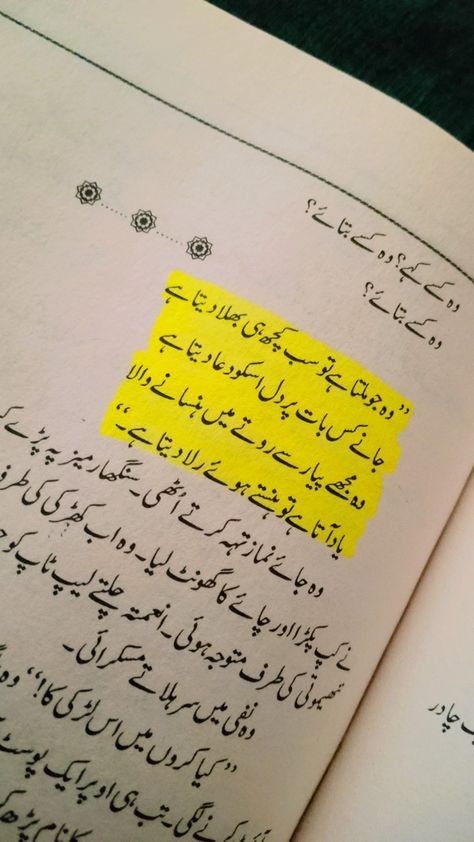 وہ کسے کہے؟ وہ کسے بتائے؟
وہ کسے بتائے؟
”وہ جو ملتا ہے تو سب کچھ ہی بھلا دیتا ہے
جانے کس بات پر دل اسکو دعا دیتا ہے
وہ مجھے پیار سے روتے میں ہنسانے والا
یاد آتا ہے تو ہنستے ہوئے رلا دیتا ہے۔“
وہ جائے نماز تہہ کرتے اُٹھی۔ سنگھار میز پہ پڑے
نے کپ پکڑا اور چائے کا گھونٹ لیا۔ وہ اب کھڑکی کی طرف
تھی کی طرف متوجہ ہوئی۔ انعمتہ چلتے لیپ ٹاپ کو
وہ نفی میں سر ہلاتے مسکرائی۔
”کیا کروں میں اس لڑکی کا!“ وہ
کرنے لگی۔ تب ہی اوپر ایک پوسٹ
کا نام پڑھ
چادر